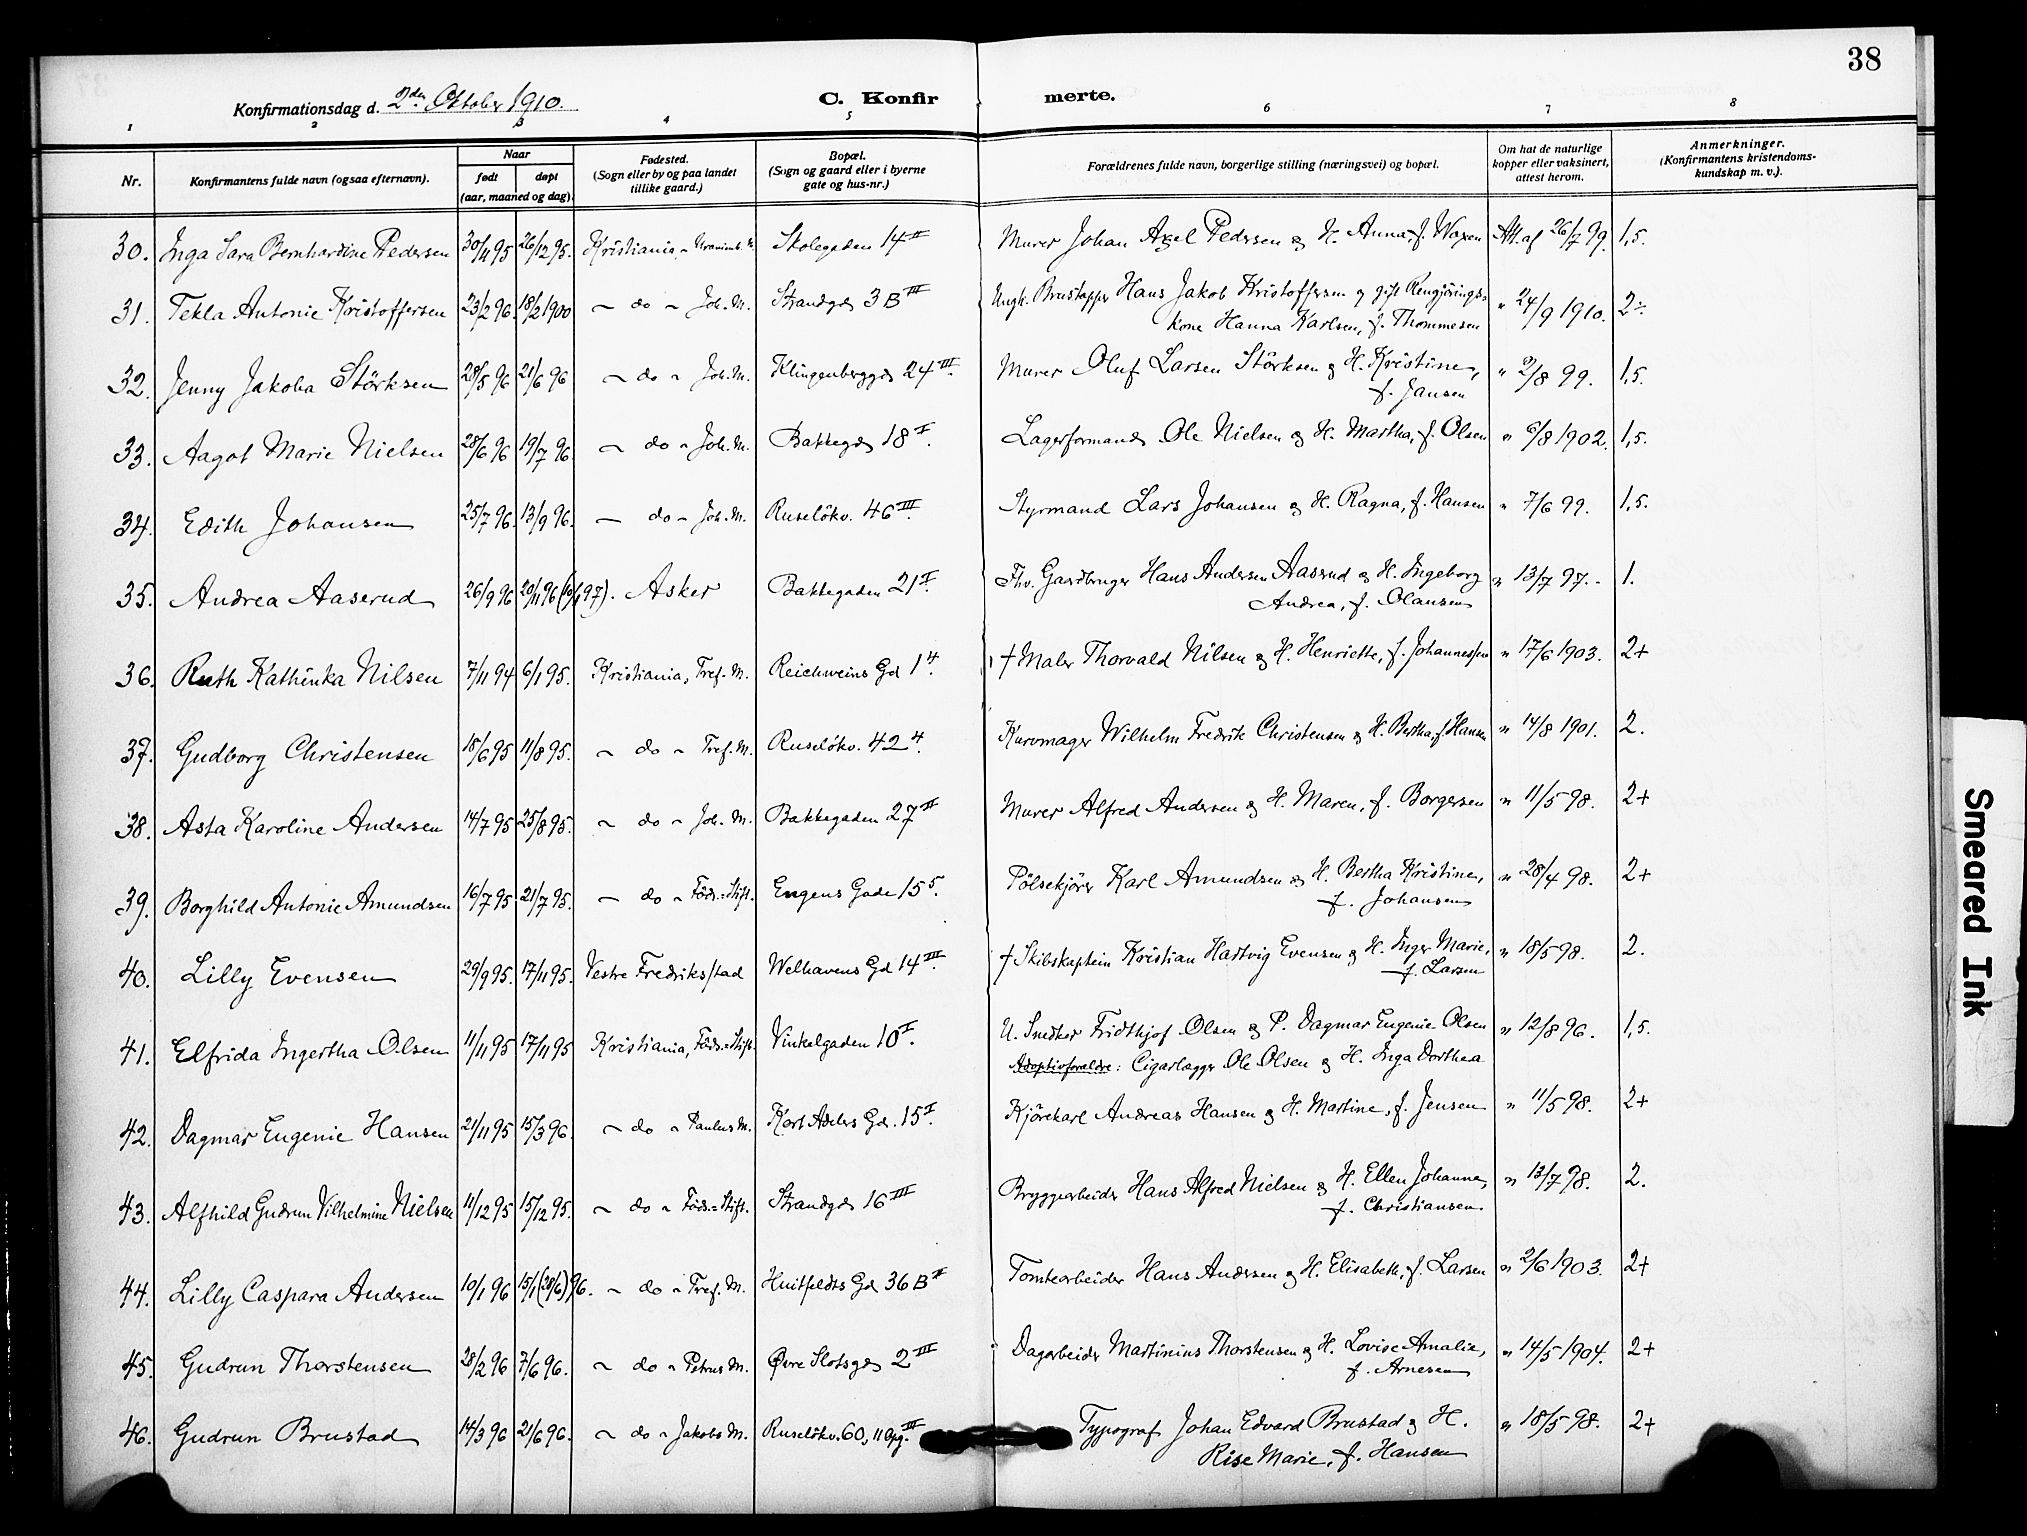 38
Konfirmationsdag d. 2den Oktober 1910.
C. Konfirmerte.
1 2 3 4 5 6 7 8
Nr.
Konfirmantens fulde navn (ogsaa efternavn).
Naar
født døpt
(aar, maaned og dag).
Fødested.
(Sogn eller by og paa landet
tillike gaard.)
Bopæl.
(Sogn og gaard eller i byerne
gate og hus-nr.)
Forældrenes fulde navn, borgerlige stilling (næringsvei) og bopæl.
Om hat de naturlige
kopper eller vaksinert,
attest herom.
Anmerkninger.
(Konfirmantens kristendoms-
kundskap m. v.).
30. Inga Sara Bernhardine Pedersen 30/11 95 26/12 95. Kristiania, Skolegaden 14 II Murer Johan Axel Pedersen og H. Anna, f. Waxen Att. af 26/7 99. 1,5.
31. Tekla Antonie Kristoffersen 23/2 96. 18/2 1900 " do " Joh. M. Strandgd 3 B III Ungk. Brustapper Hans Jakob Kristoffersen og gift Rengjørings-
kone Hanna Karlsen, f. Thommesen " 24/9 1910. 2÷
32. Jenny Jakoba Störksen 28/5 96 21/6 96 " do " Joh. M. Klingenberggd 24 III. Murer Oluf Larsen Störksen og H. Kristine,
f. Jansen " 2/8 99. 1,5.
33. Aagot Marie Nielsen 28/6 96 19/7 96 " do " Joh. M. Bakkegd 18 I. Lagerformand Ole Nielsen og H. Martha, f. Olsen " 6/8 1902. 1,5.
34. Edith Johansen 25/7 96. 13/9 96. " do " Joh. M. Ruselökv. 46 III. Styrmand Lars Johansen og H. Ragna, f. Hansen " 7/6 99. 1,5.
35. Andrea Aaserud 26/9 96 20/11 96 Asker Bakkegaden 21 I. Fhv. Gaardbruger Hans Andersen Aaserud og H. Ingeborg
Andrea, f. Olausen " 13/7 97. 1.
36. Ruth Kathinka Nilsen 7/11 94 6/1 95. Kristiania, Tref. M. Reichweins Gd 1 4. † Maler Thorvald Nilsen og H. Henriette, f. Johannessen " 17/6 1903. 2+
37. Gudborg Christensen 18/6 95 11/8 95. " do " Tref. M. Ruselökv. 42 4. Kurvmager Wilhelm Fredrik Christensen og H. Bertha, f. Hansen " 14/8 1901. 2.
38. Asta Karoline Andersen 14/7 95 25/8 95. " do " Joh. M. Bakkegaden 27 II Murer Alfred Andersen og H. Maren, f. Borgersen " 11/5 98. 2+
39. Borghild Antonie Amundsen 16/7 95 21/7 95. " do " Föds.=Stift. Engens Gade 15 5. Pölsekjörer Karl Amundsen og H. Bertha Kristine,
f. Johansen " 28/4 98. 2+
40. Lilly Evensen 29/9 95. 17/11 95. Vestre Fredriksstad Welhavens Gd 14 III. † Skibskaptein Kristian Hartvig Evensen og H. Inger Marie,
f. Larsen " 18/5 98. 2.
41. Elfrida Ingertha Olsen 11/11 95 17/11 95 Kristiania, Föds.=Stift. Vinkelgaden 10 I. U. Snedker Fridthjof Olsen og P. Dagmar Eugenie Olsen
Adoptivforældre: Cigarlægger Ole Olsen og H. Inga Dorthea " 12/8 96. 1,5.
42. Dagmar Eugenie Hansen 21/11 95 15/3 96. " do " Paulus M. Kort Adelers Gd. 15 I. Kjörekarl Andreas Hansen og H. Martine, f. Jensen " 11/5 98. 2+
43. Alfhild Gudrun Vilhelmine Nielsen 11/12 95 15/12 95. " do " Föds.=Stift. Strandgd 16 III Bryggearbeider Hans Alfred Nielsen og H. Ellen Johanne,
f. Christiansen " 13/7 98. 2.
44. Lilly Caspara Andersen 10/1 96 15/1 (28/6) 96. " do " Tref. M. Huitfeldts Gd 36 B II Tomtearbeider Hans Andersen og H. Elisabeth, f. Larsen " 2/6 1903. 2+
45. Gudrun Thorstensen 28/2 96 7/6 96. " do " Petrus M. Øvre Slotsgd 2 III Dagarbeider Martinius Thorstensen og H. Lovise Amalie,
f. Arnesen " 14/5 1904. 2+
46. Gudrun Brustad 14/3 96 21/6 96. " do " Jakobs M. Ruselökv. 60, 11 Opg. III Typograf Johan Edvard Brustad og H.
Rise Marie, f. Hansen " 18/5 98. 2+
Smeared Ink